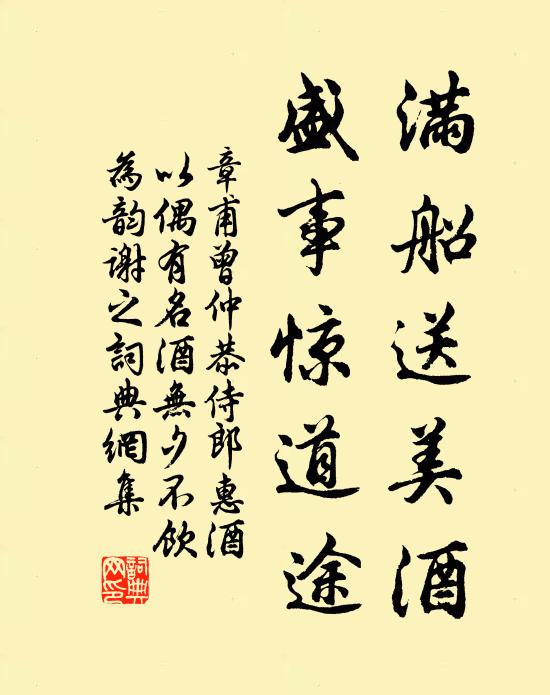 满船送美酒
盛事惊道途
章甫曾仲恭侍郎惠酒
以偶有名酒無夕不饮
為韵谢之詞典網集
詞典
网印